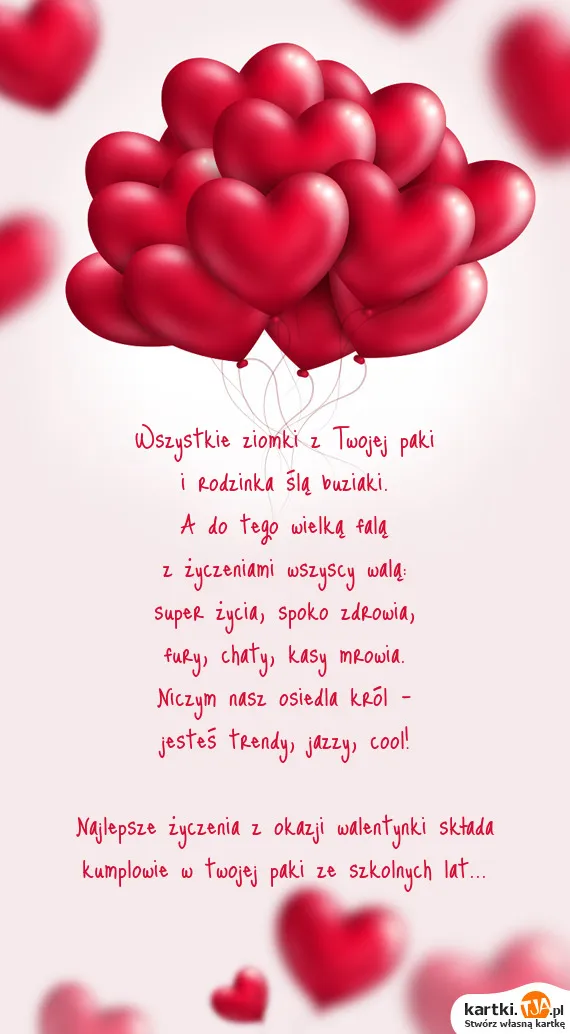 Wszystkie ziomki z Twojej paki
i rodzinka ślą buziaki.
A do tego wielką falą
z życzeniami wszyscy walą:
super życia, spoko zdrowia,
fury, chaty, kasy mrowia.
Niczym nasz osiedla król -
jesteś trendy, jazzy, cool!
Najlepsze życzenia z okazji walentynki składa
kumplowie w twojej paki ze szkolnych lat...
kartki.TJA.pl
Stwórz własną kartkę